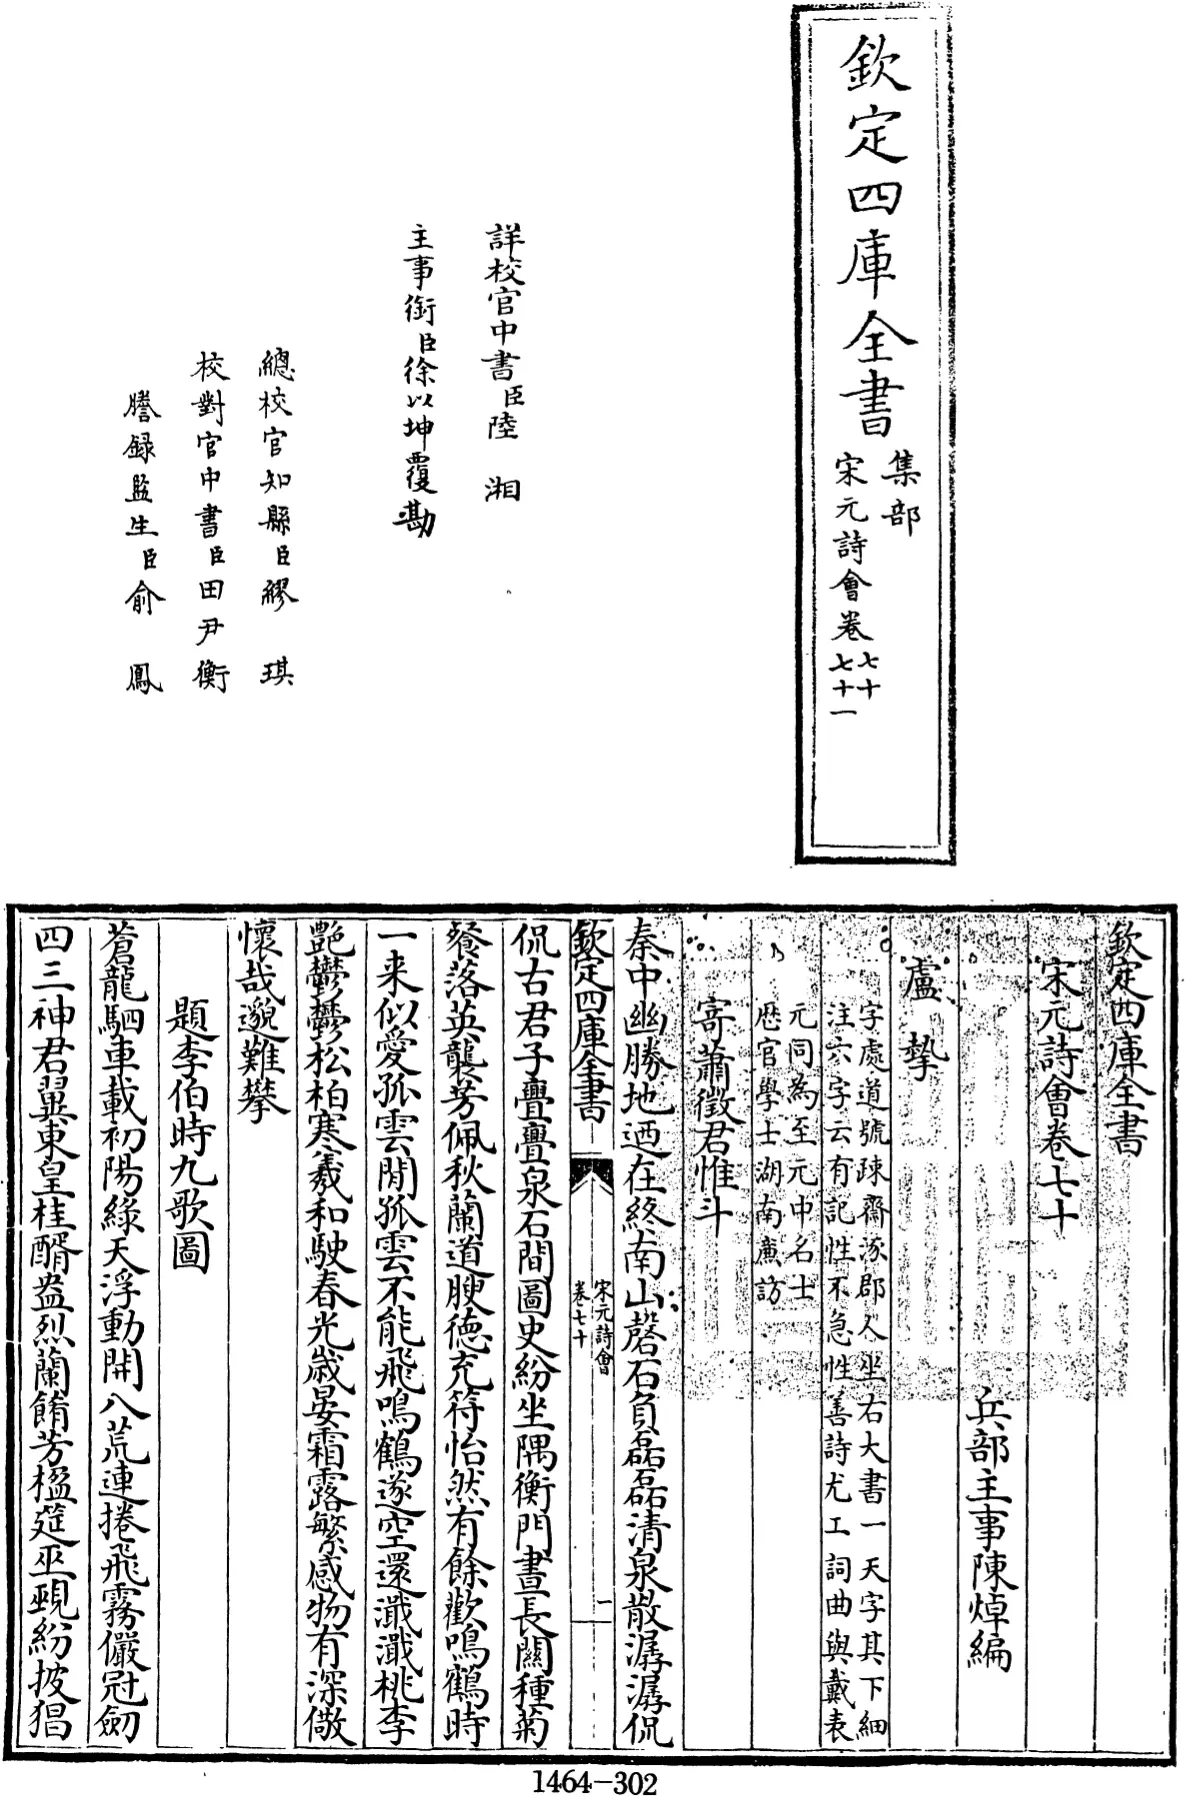 欽定四庫全書
集部
宋元詩會卷七十
七十一
詳校官中書臣陸湘
主事銜臣徐以坤覆勘
總校官知縣臣繆琪
校對官中書臣田尹衡
謄録監生臣俞鳳
欽定四庫全書
宋元詩會卷七十
兵部主事陳焯編
盧摯
字處道號疎齋涿郡人坐右大書一天字其下細
注六字云有記性不急性善詩尤工詞曲與戴表
元同為至元中名士
歴官學士湖南亷訪
寄蕭徵君惟斗
秦中幽勝地迺在終南山磬石負磊磊清泉散潺潺侃
欽定四庫全書
宋元詩會
卷七十
一
侃古君子亹亹泉石間圖史紛坐隅衡門晝長闗種菊
餐落英襲芳佩秋蘭道腴徳充符怡然有餘歡鳴鶴時
一来似愛孤雲閒孤雲不能飛鳴鶴遂空還灑灑桃李
艶鬱鬱松柏寒羲和駛春光歳晏霜露繁感物有深儆
懷哉邈難攀
題李伯時九歌圖
蒼龍駟車載初陽緑天浮動開八荒連捲飛霧儼冠劒
四三神君翼東皇桂醑盎烈蘭餚芳楹筵巫覡紛披猖
1464-302